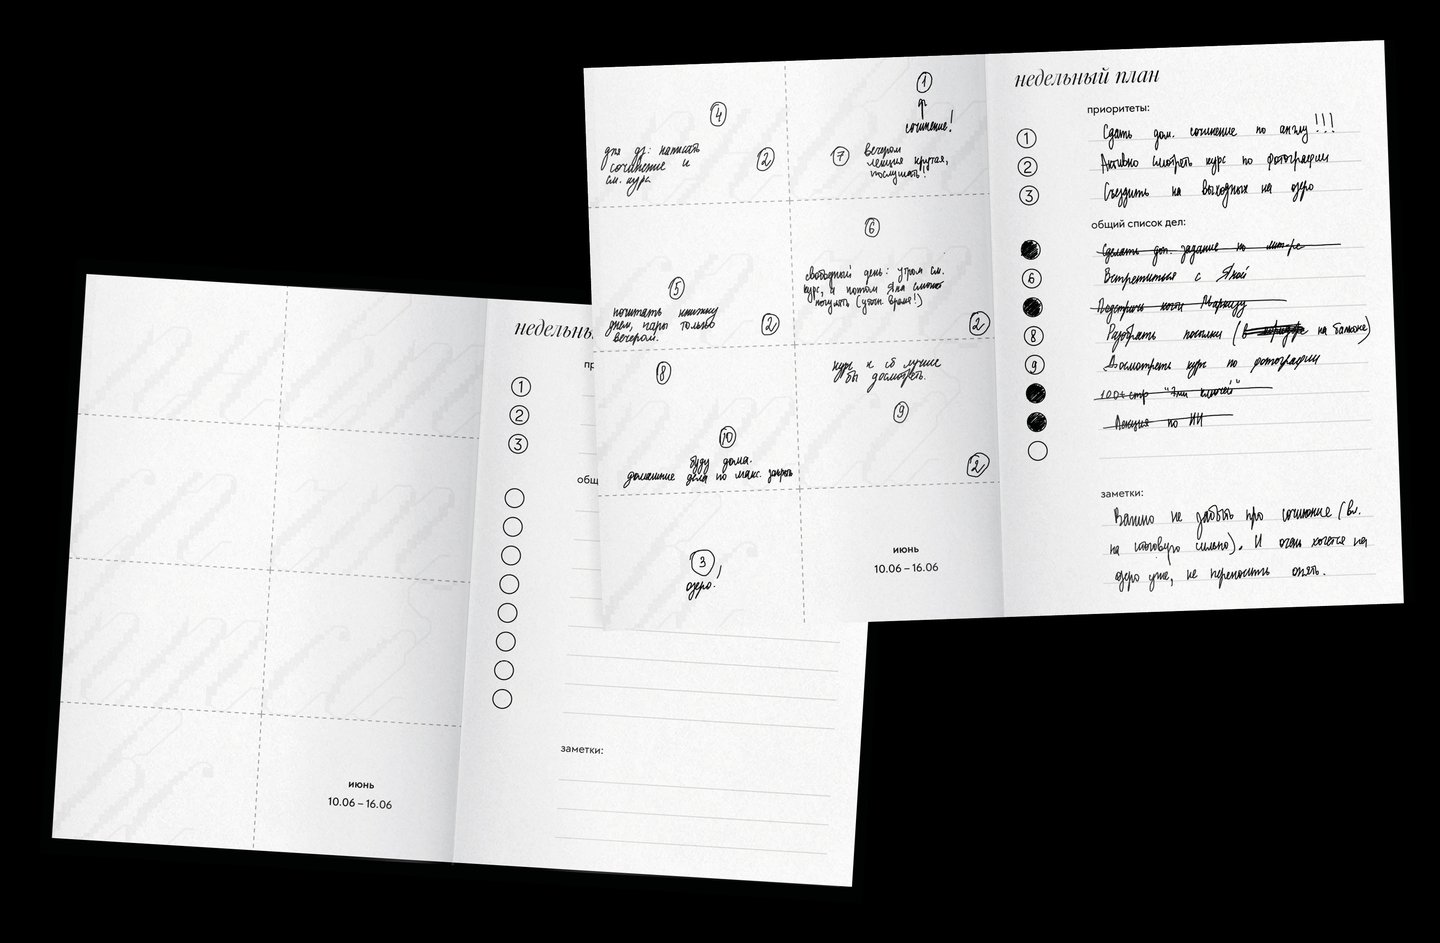 недельный план
приоритеты:
1 Сдать дом. сочинение по англу!!!
2 Активно смотреть курс по фотографии
3 Съездить на выходных на озеро
общий список дел:
Сделать доп. задание по
6 Встретиться с Яной
Подстричь когти Маркизу
8 Разобрать посылки ( на балконе)
9 Досмотреть курс по фотографии
100+стр "Эпи ключей"
Лекция по ИИ
заметки:
Важно не забыть про сочинение (вл.
на итоговую сильно). И очень хочется на
озеро уже, не переносить опять.
4
дня дз: написать
сочинение и
см. курс.
2
1
сочинение!
7
вечером
лекция крутая,
послушать!
5
почитать книжку
днём, пары только
вечером.
2
6
свободный день: утром см.
курс, а потом Яна сможет
погулять (уточ. время!)
2
8
10
буду дома.
домашние дела по макс. закрыть
курс к сб лучше
бы досмотреть.
9
2
3
озеро!
июнь
10.06 – 16.06
недельн
пр
1
2
3
общ
заметки:
июнь
10.06 – 16.06